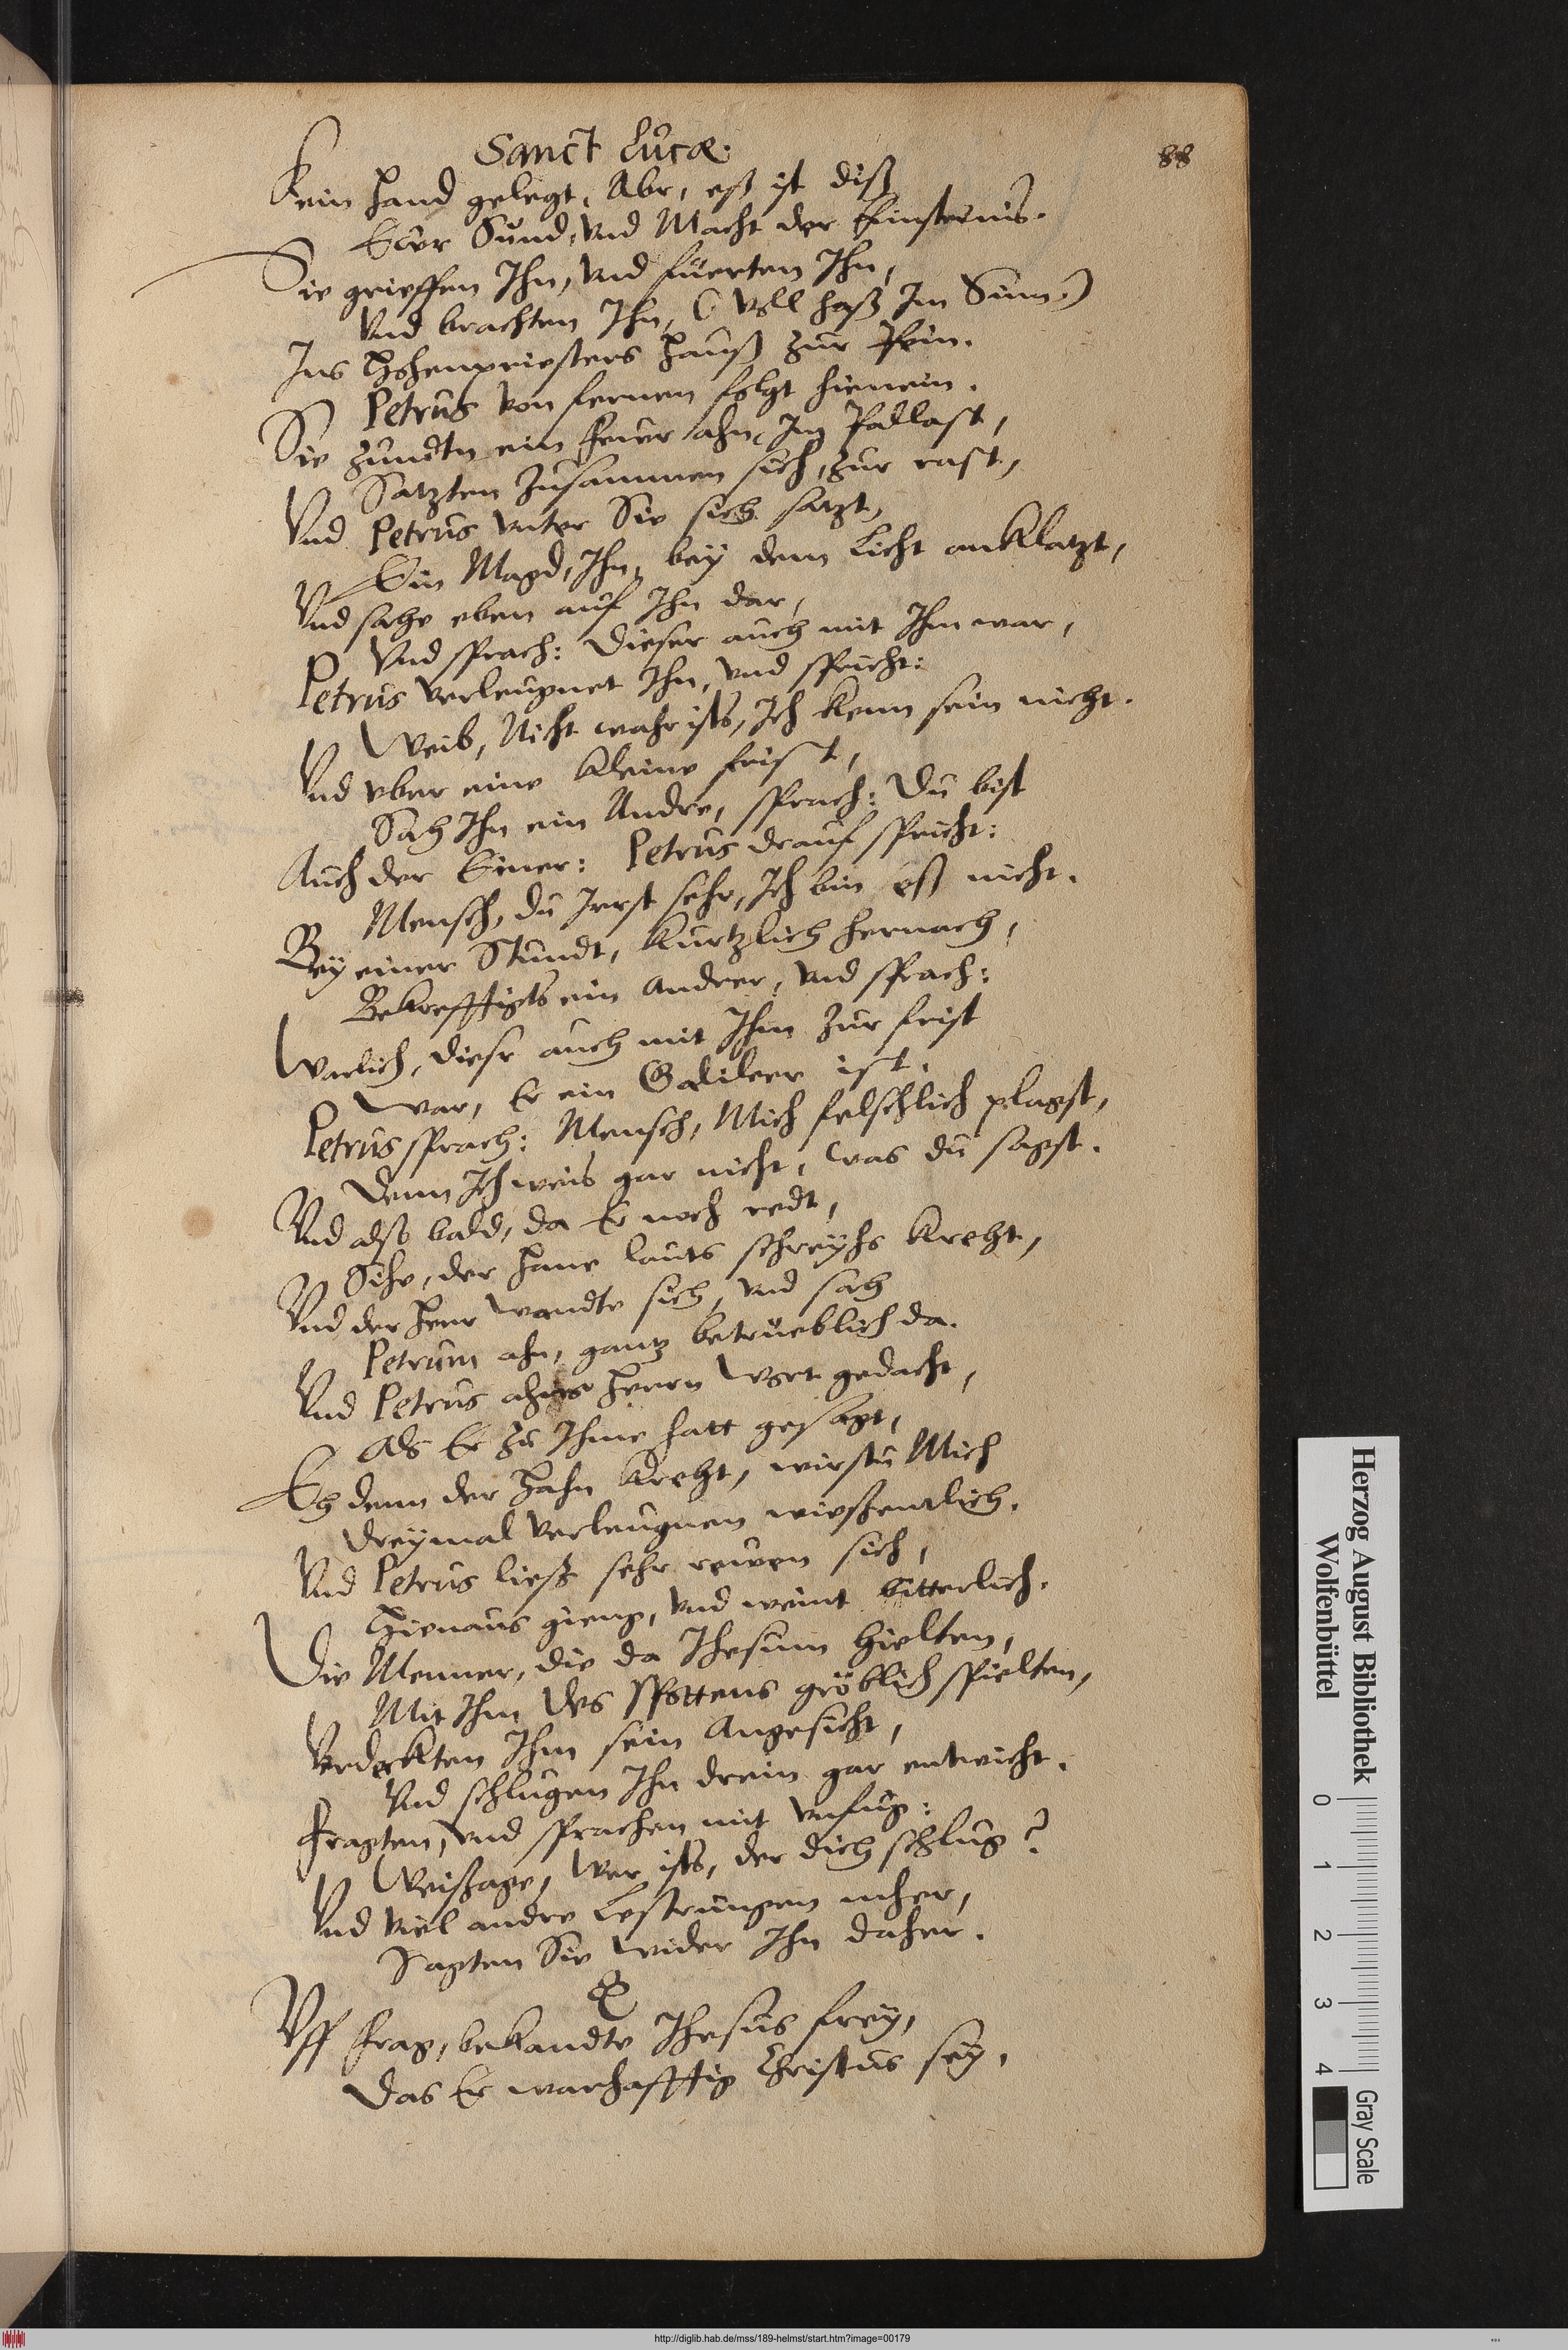 Sanct Lucæ.
88
Kein Hand gelegt, Abr, eß ist diß
Ewr Stund, Vnd Macht der Finsternis.
Sie grieffen Ihn, Vnd füerten Ihn,
Vnd brachten Ihn, (Voll haß Im Sinn)
Ins Hohenpriesters Hauß zur Pein.
Petrus von fernen folgt hienein.
Sie zundtn ein Feuer ahn, Im Pallast,
Satzten Zusammen sich, zur rast,
Vnd Petrus vnter Sie sich satzt,
Ein Magd, Ihn, bey dem Licht anklatzt,
Vnd sahe eben auf Ihn dar,
Vnd sprach: Dieser auch mit Ihm war,
Petrus verleugnet Ihn, vnd spricht:
Weib, Nicht wahr ists, Ich kenn sein nicht.
Vnd vber eine kleine frist,
Sah Ihn ein Andre, sprach: Du bist
Auch der Einer: Petrus drauf spricht:
Mensch, du Irrst sehr, Ich bin eß nicht.
Bey einer Stundt, kurtzlich hernach,
Bekrefftigts ein andrer, vnd sprach:
Warlich, dieser auch mit Ihm zur frist
War, Er ein Galileer ist.
Petrus sprach: Mensch, Mich felschlich plagst,
Denn Ich weis gar nicht, was du sagst.
Vnd alß bald, da Er noch redt,
Sihe, der Hane lauts schreyhs kreht,
Vnd der Herr wandte sich, vnd sah
Petrum ahn, gantz betrüeblich da.
Vnd Petrus ahns Herrn Wort gedacht,
Als Er zu Ihme hatt gesagt,
Eh denn der Hahn kreht, wirstu Mich
Dreymal verleugnen wießentlich.
Vnd Petrus ließ sehr rewen sich,
Hienaus gieng, vnd weint bitterlich.
Die Menner, die da Ihesum hielten,
Mit Ihm des Spottens gröblich spielten,
Verdeckten Ihm sein Angesicht,
Vnd schlugen Ihn drein gar entwicht.
Fragten, vnd sprachen mit vnfug:
Weißage, Wer ists, der dich schlug?
Vnd viel andre Lestrungen meher,
Sagten Sie wider Ihn daher.
Vff Frag, bekandte Ihesus frey,
Das Er warhafftig Christus sey.
Herzog August Bibliothek
Wolfenbüttel
0 1 2 3 4
Gray Scale
http://diglib.hab.de/mss/189-helmst/start.htm?image=00179